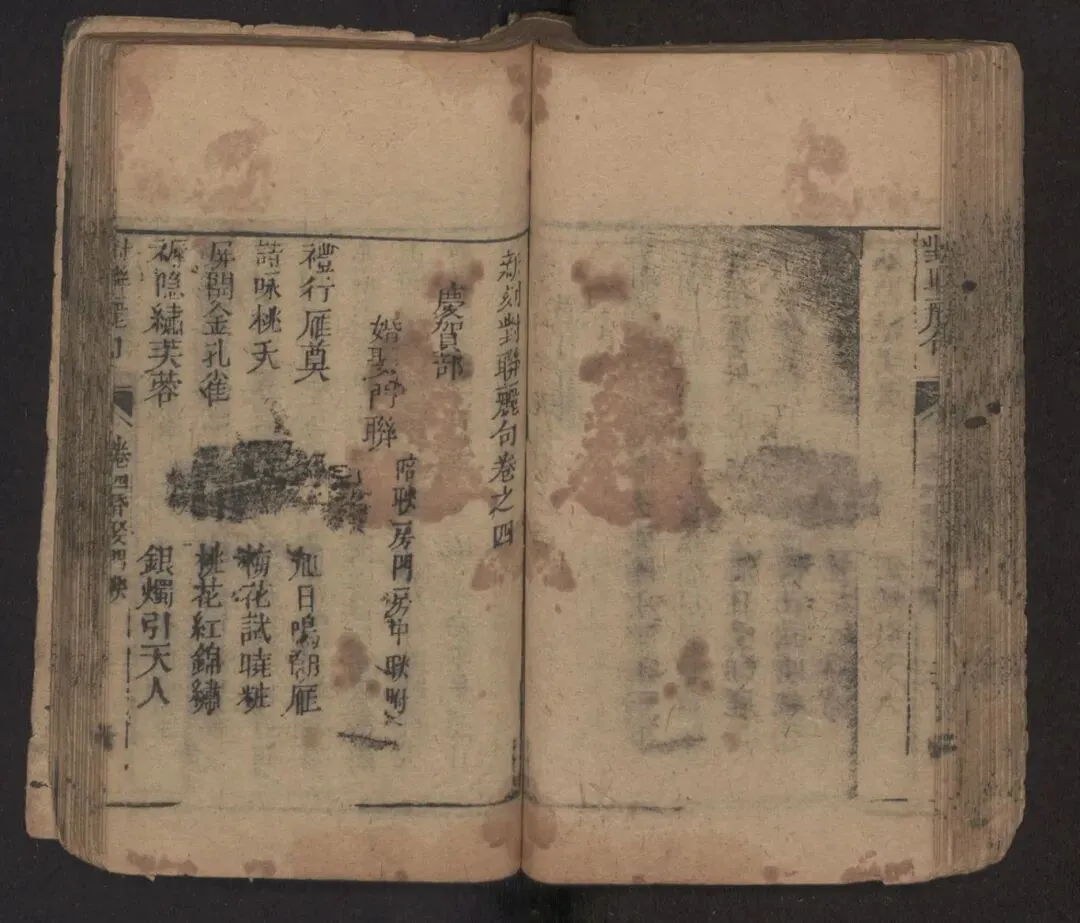 新刻對聯麗句卷之四
慶賀部
婚娶門聯
暗聯房門房中聯附
禮行雁奠
旭日鳴朝雁
詩咏桃夭
梅花試曉粧
屏開金孔雀
桃花紅錦繡
褥隱繡芙蓉
銀燭引天人
卷四婚娶門聯